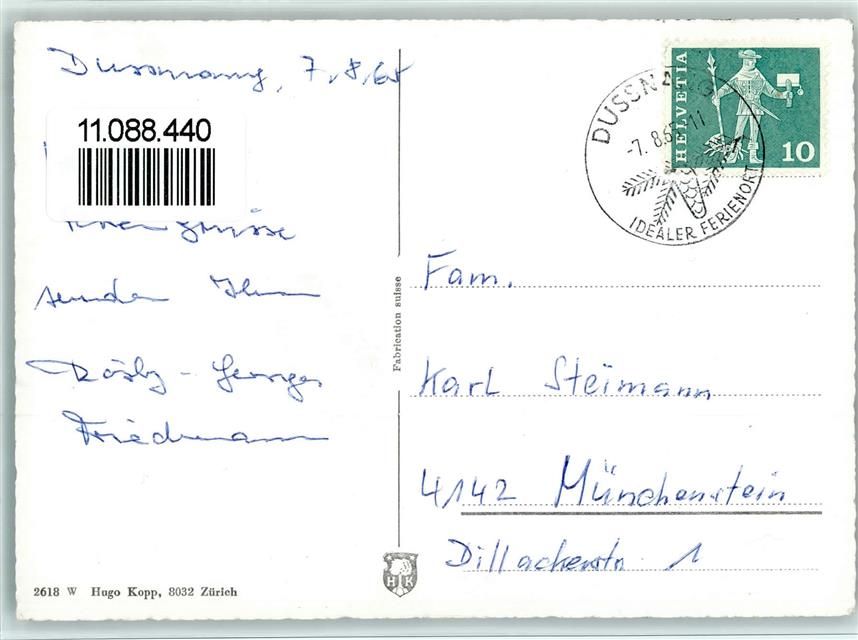 Dussnang, 7.8.65
11.088.440
grüsse
senden Ihnen
Rösly - Georges
Friedmann
Fabrication suisse
2618 W Hugo Kopp, 8032 Zürich
HK
DUSSNANG
-7. 8.65-11
IDEALER FERIENORT
HELVETIA
10
Fam.
Karl Steimann
4142 Münchenstein
Dillackerstr. 1